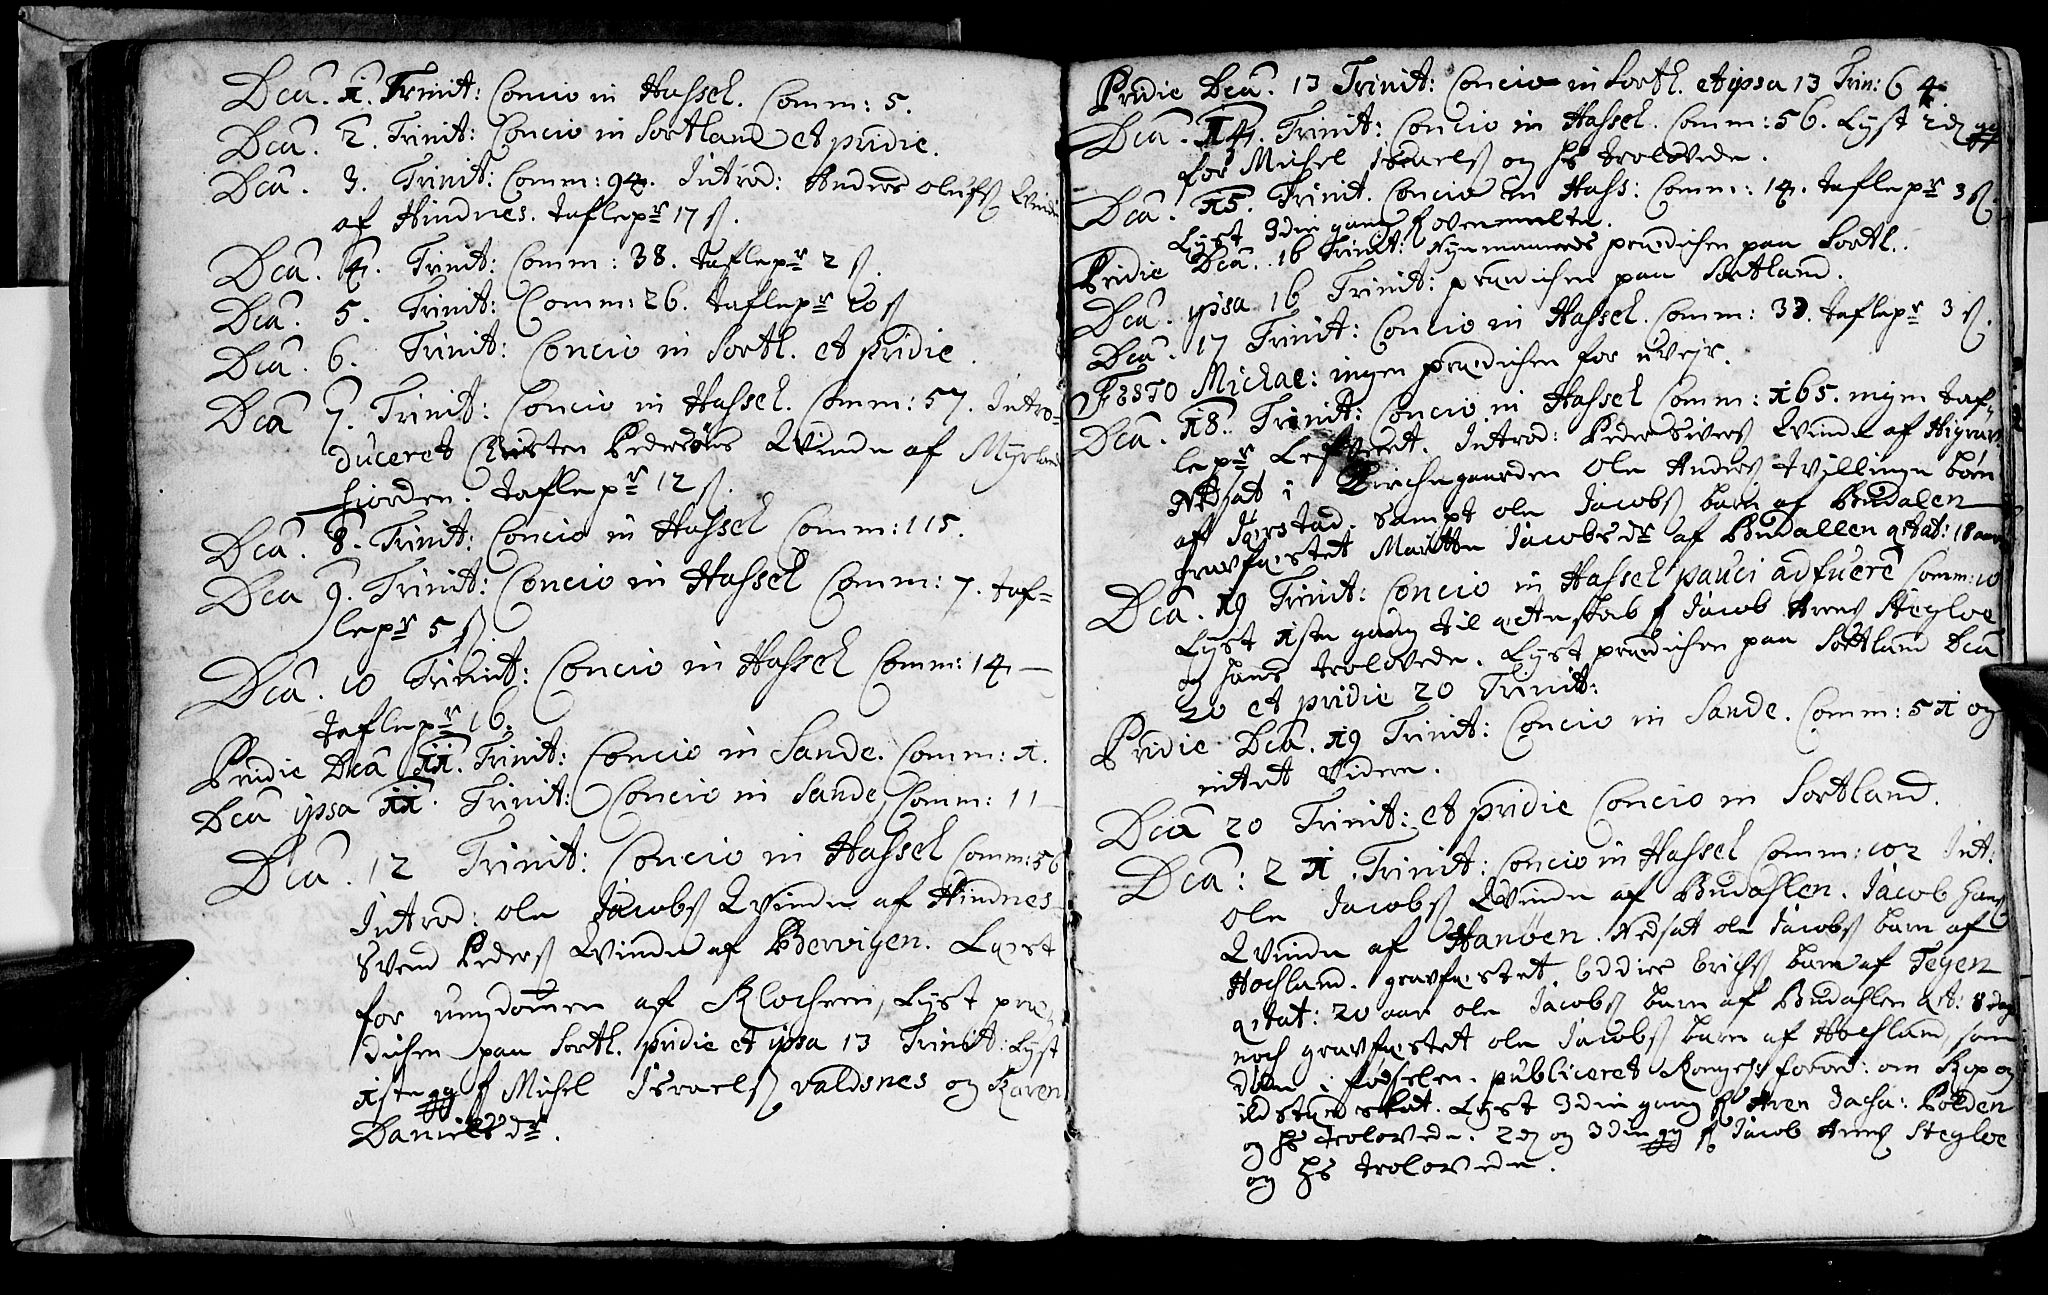 Dca. 1. Trinit: Concio in Hassel. Comm: 5.
Dca. 2. Trinit: Concio in Sortland et pridie.
Dca. 3. Trinit: Comm: 94. Introd: Anders Olufs Qvinde
af Hindnes. taflepr 17 s.
Dca. 4. Trinit: Comm: 38. taflepr 2 s.
Dca. 5. Trinit: Comm: 26. taflepr 20 s
Dca. 6. Trinit: Concio in Sortl. et pridie.
Dca 7. Trinit: Concio in Hassel. Comm: 57. Intro-
duceret Christen Pedersöns Qvinde af Myrland
fiorden. taflepr 12 s.
Dca. 8. Trinit: Concio in Hassel Comm: 115.
Dca 9. Trinit: Concio in Hassel Comm: 7. taf=
lepr 5 s
Dca. 10 Trinit: Concio in Hassel Comm: 14 —
taflepr 16.
Pridie Dca 11. Trinit: Concio in Sande. Comm: 1.
Dca ipsa 11. Trinit: Concio in Sande Comm: 11 —
Dca. 12 Trinit: Concio in Hassel Comm: 56
Introd: Ole Jacobs Qvinde af Hindnes
Svend Peders Qvinde af Bervigen. Læst
for ungdomen af Klochern, Lyst præ,
dichen paa Sortl. pridie et ipsa 13 Trinit: Lyst
1ste gg f Michel Israels Valdsnes og Karen
Daniels dr.
Pridie Dca. 13 Trinit: Concio in Sortl. et ipsa 13 Trin: 64.
Dca. 14. Trinit: Concio in Hassel. Comm: 56. Lyst 2den gg
for Michel Israels og hs trolovede.
Dca. 15. Trinit. Concio in Hass: Comm: 14. taflepr 3 s.
Lyst 3die gang
Pridie Dca. 16 Trinit: præedichen paa Sortl.
Dca. ipsa 16 Trinit: prædichen paa Sortland.
Dca. 17 Trinit: Concio in Hassel. Comm: 33. taflepr 3 s.
FESTO Michae: ingen prædichen for uvejr.
Dca. 18. Trinit: Concio in Hassel Comm: 165. ingen taf=
lepr Introd: Peder Sivers Qvinde af
Nedsat i Kirchegaarden Ole Anders tvillinge børn
af Jørstad. Sampt Ole Jacobs barn af Budalen
gravfæstet Marthe Jacobs dr af Budallen ætat: 18 aar
Dca. 19 Trinit: Concio in Hassel pauci adfuere Comm: 10
Lyst 1ste gang til ægteskab f Jacob Arens Stegloe
og hans trolovede. Lyst prædichen paa Sortland Dca
20 et pridie 20 Trinit:
Pridie Dca. 19 Trinit: Concio in Sande. Comm: 51 og
intet videre.
Dca 20 Trinit: et pridie Concio in Sortland.
Dca: 21. Trinit: Concio in Hassel Comm: 102 Int:
Ole Jacobs Qvinde af Budahlen. Jacob Hans
Qvinde af Hanöen. Nedsat Ole Jacobs barn af
Hochland. gravfæstet Erichs barn af Tegen
ætat: 20 aar Ole Jacobs barn af Budahlen æt: 8 dage
noch gravfæstet Ole Jacobs barn af Hochland, som
døde i fødselen. publiceret Konges forord: om Kop og
ildsteds skat. Lyst 3die gang f Aren Jacha: Polden
og hs trolovede. 2den og 3die gg f Jacob Arens Stegloe
og hs trolovede.